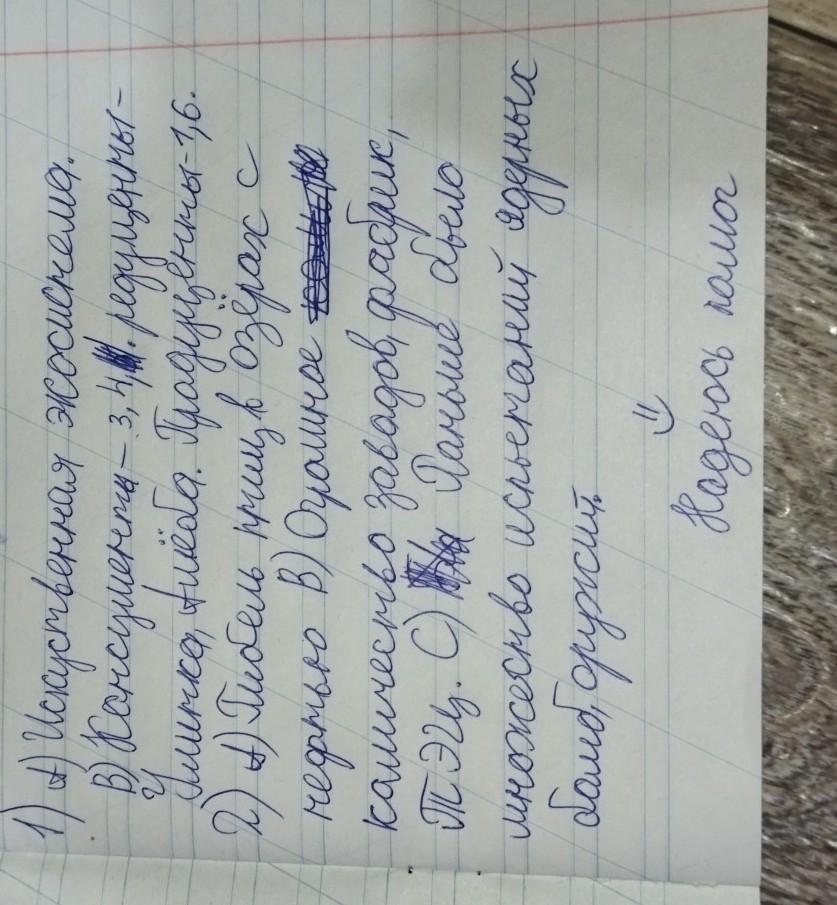 1) А) Искуственная экосистема.
В) Консументы - 3, 4. редуценты -
Улитка, Амёба. Продуценты - 1, 6.
2) А) Гибель птиц в озёрах с
нефтью В) Огромное
количество заводов, фабрик,
ТЭЦ. С) Раньше было
множество испытаний ядерных
бомб, оружий.
Надеюсь помог